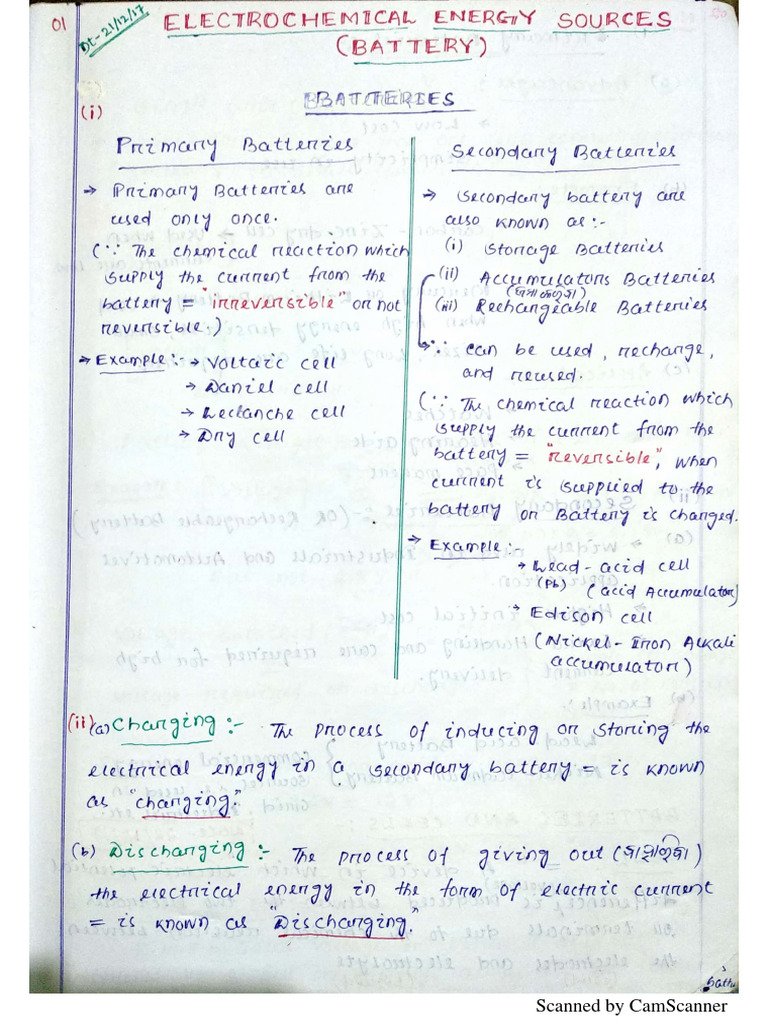 01
Dt-21/12/17
ELECTROCHEMICAL ENERGY SOURCES
(BATTERY)
BATTERIES
(i)
Primary Batteries
→ Primary Batteries are
used only once.
(∵ The chemical reaction which
supply the current from the
battery = "irreversible" or not
reversible.)
→ Example:- → Voltaic cell
→ Daniel cell
→ Leclanche cell
→ Dry cell
Secondary Batteries
→ Secondary battery are
also known as:-
(i) Storage Batteries
(ii) Accumulators Batteries
(iii) Rechangeable Batteries
→ ∵ can be used, recharge,
and reused.
(∵ The chemical reaction which
supply the current from the
battery = "reversible", when
current is supplied to the
battery or Battery is charged.
→ Example:-
→ Lead-acid cell
(Pb) (acid Accumulator)
→ Edison cell
(Nickel-Iron Alkali
accumulator)
(ii) (a) Charging:- The process of inducing or storing the
electrical energy in a secondary battery = is known
as "charging."
(b) Discharging:- The process of giving out
the electrical energy in the form of electric current
= is known as "Discharging."
Scanned by CamScanner